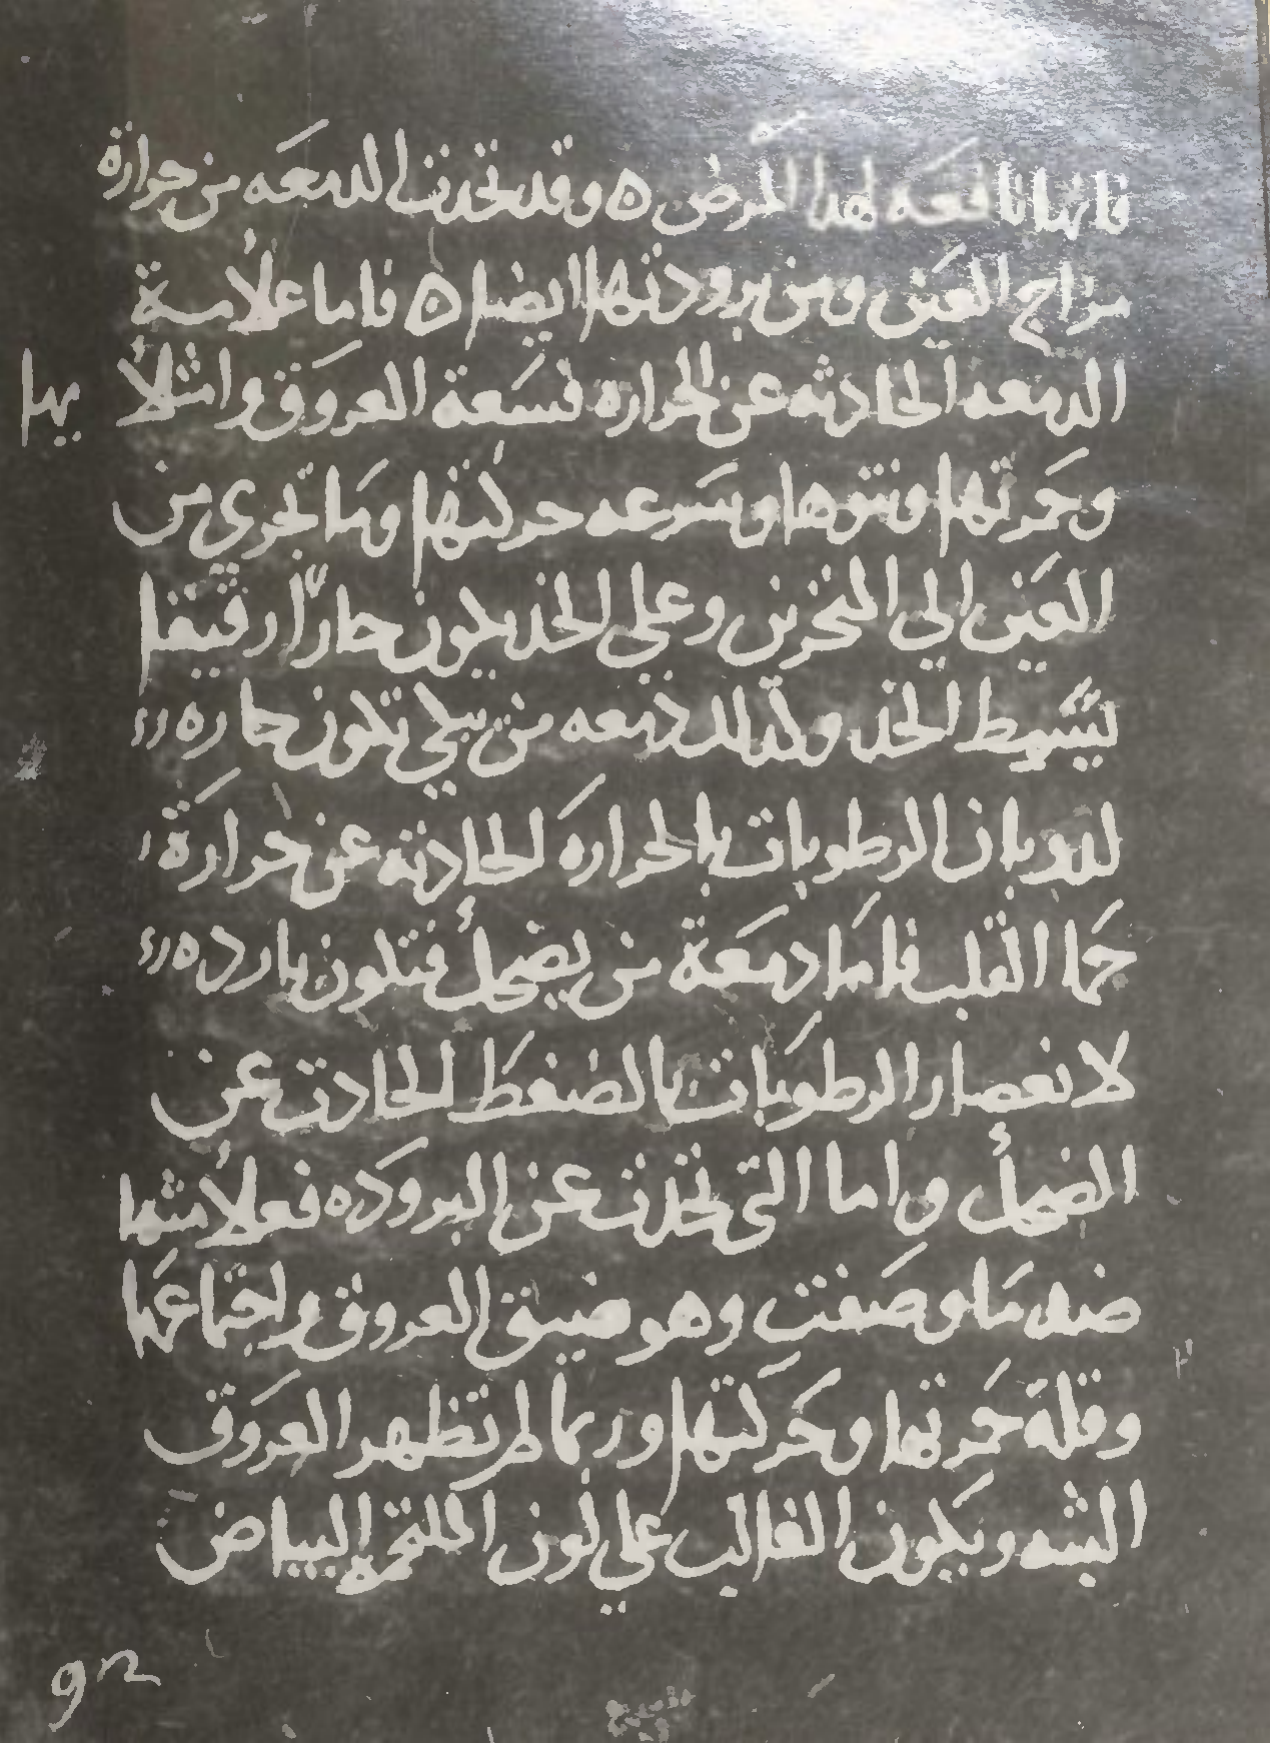 فانها نافعه لهذا المرض ه وقد تحدث الدمعه من حرارة
مزاج العين ومن برودتها ايضا ه فاما علامة
الدمعه الحادثه عن الحراره فسعة العروق وامتلا يها
وحمرتها ونتوها وسرعه حركتها وما تجري من
العين الي المنخرين وعلي الخد يكون حارّا رقيقا
يشيط الخد وكذلك دمعه من يبكي تكون حاره
لذوبان الرطوبات بالحراره الحادثه عن حرارة
حما القلب فاما دمعة من يضحك فتكون بارده
لانعصار الرطوبات بالضغط الحادث عن
الضحك واما التي تحدث عن البروده فعلامتها
ضد ما وصفت وهو ضيق العروق واجتماعها
وقلة حمرتها وحركتها وربما لم تظهر العروق
البته ويكون الغالب علي لون الملتحمه البياض